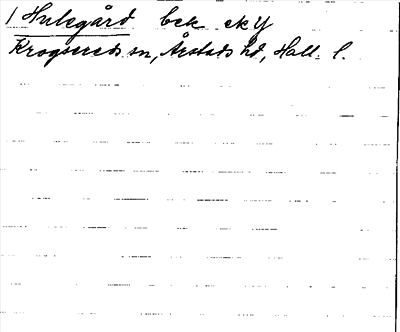 1 Hulegård bek ek Y
Krogsereds sn, Årstads hd, Hall. l.